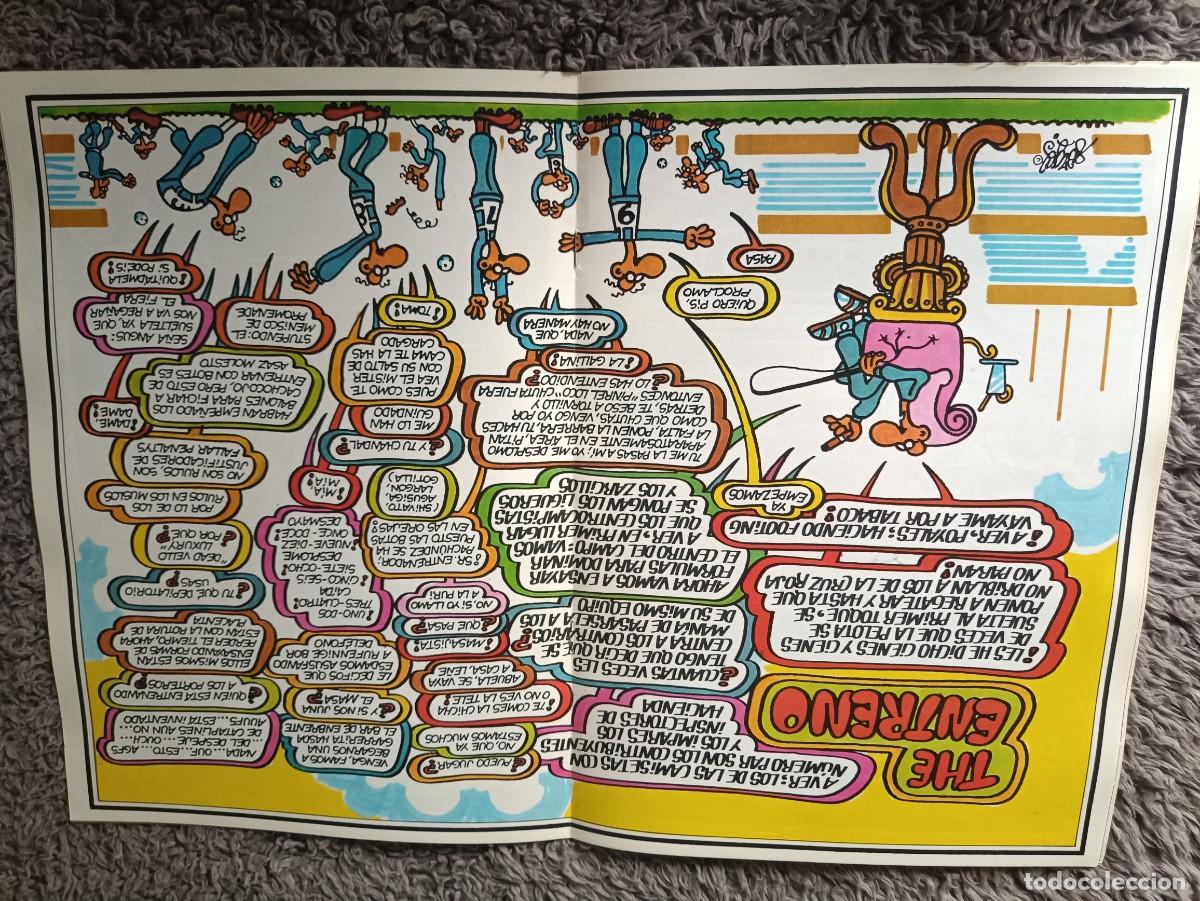 THE
ENTRENO
¡LES HE DICHO CIENES Y CIENES
DE VECES QUE LA PELOTA SE
SUELTA AL PRIMER TOQUE, SE
PONEN A REGATEAR Y HASTA QUE
NO DRIBLAN A LOS DE LA CRUZ ROJA
NO PARAN!
¡A VER, POYALES: HACIENDO FOOTING
VÁYAME A POR TABACO!
A VER: LOS DE LAS CAMISETAS CON
NÚMERO PAR SON LOS CONTRIBUYENTES
Y LOS IMPARES LOS
INSPECTORES DE
HACIENDA
¿CUANTAS VECES LES
TENGO QUE DECIR QUE SE
CENTRA A LOS CONTRARIOS?
MANÍA DE PASARSELA A LOS
DE SU MISMO EQUIPO
AHORA VAMOS A ENSAYAR
FÓRMULAS PARA DOMINAR
EL CENTRO DEL CAMPO: VAMOS
A VER: EN PRIMER LUGAR
QUE LOS CENTROCAMPISTAS
SE PONGAN LOS LIGUEROS
Y LOS ZARCILLOS
YA
EMPEZAMOS
QUIERO PIS,
PROCLAMO
PASA
TU ME LA PASAS A MI; YO ME DESPLOMO
APARATOSAMENTE EN EL ÁREA, PITAN
LA FALTA, PONEN LA BARRERA, TU HACES
COMO QUE CHUTAS, VENGO YO POR
DETRÁS, TE BESO A TORNILLO Y
ENTONCES "PINREL LOCO" CHUTA FUERA
¿LO HAS ENTENDIDO?
¡LA GALLINA!
NADA, QUE
NO HAY MANERA
¿PUEDO JUGAR?
NO, QUE YA
ESTAMOS MUCHOS
¡TE COMES LA CHICHA
O NO VES LA TELE!
ABUELA, SE VAYA
A CASA, LEÑE
¡MASAJISTA!
¿QUE PASA?
NO, SI YO LLAMO
A LA PURI
¡SR. ENTRENADOR;
PACHÚNDEZ SE HA
PUESTO LAS BOTAS
EN LAS OREJAS!
¿Y TU CHÁNDAL?
ME LO HAN
GUINDADO
PUES COMO TE
VEA EL MISTER
CON SU SALTO DE
CAMA TE LA HAS
CARGADO
¡TOMA!
VENGA, FAMOS A
PEGARNOS UNA
CARRERITA HASDA
EL BAR DE ENFRENTE
¿Y SI NOS JUNA
EL MASA?
LE DECIFOS QUE
ESDAMOS ASUSFANDO
A RUMENIGE BOR
DELÉFONO
UNO-DOS
TRES-CUATRO
CAIDA
CINKO-SEIS
SIETE-OCHO
DESPLOME
NUEVE-DIEZ
ONCE-DOCE
DESMAYO
¡MÍA,
MÍA!
NADA... ESTO... OUF... AGFS
DEL DESPEJE... OUCH...
DE CATAPLINES AUN NO...
AUFFS... ESTÁ INVENTADO
¿QUIÉN ESTÁ ENTRENANDO
A LOS PORTEROS?
ELLOS MISMOS ESTÁN
ENSAYANDO FORMAS DE
PERDER EL TIEMPO, AHORA
ESTÁN CON LA POSTURA DE
PLACENTA
¿TU QUE DEPILATORIO
USAS?
"DEAD BELLO
LUXURY"
¿POR QUÉ?
POR LO DE LOS
RULOS EN LOS MUSLOS
NO SON RULOS, SON
JUSTIFICADORES DE
FALLAR PENALTYS
¡DAME,
DAME!
HABRÁN EMPEÑADO LOS
BALONES PARA FICHAR A
CACHOCOJO, PERO ESTO DE
ENTRENAR CON BOTES ES
MÁS MOLESTO
STIPENDO: EL
MENISCO DE
PROMENADE
SENA ANGUS:
SUELTELA YA, QUE
NOS VA A REGAÑAR
EL FIERA
¡QUITÁDMELA
SI PODÉIS!
9
7
8
todocoleccion